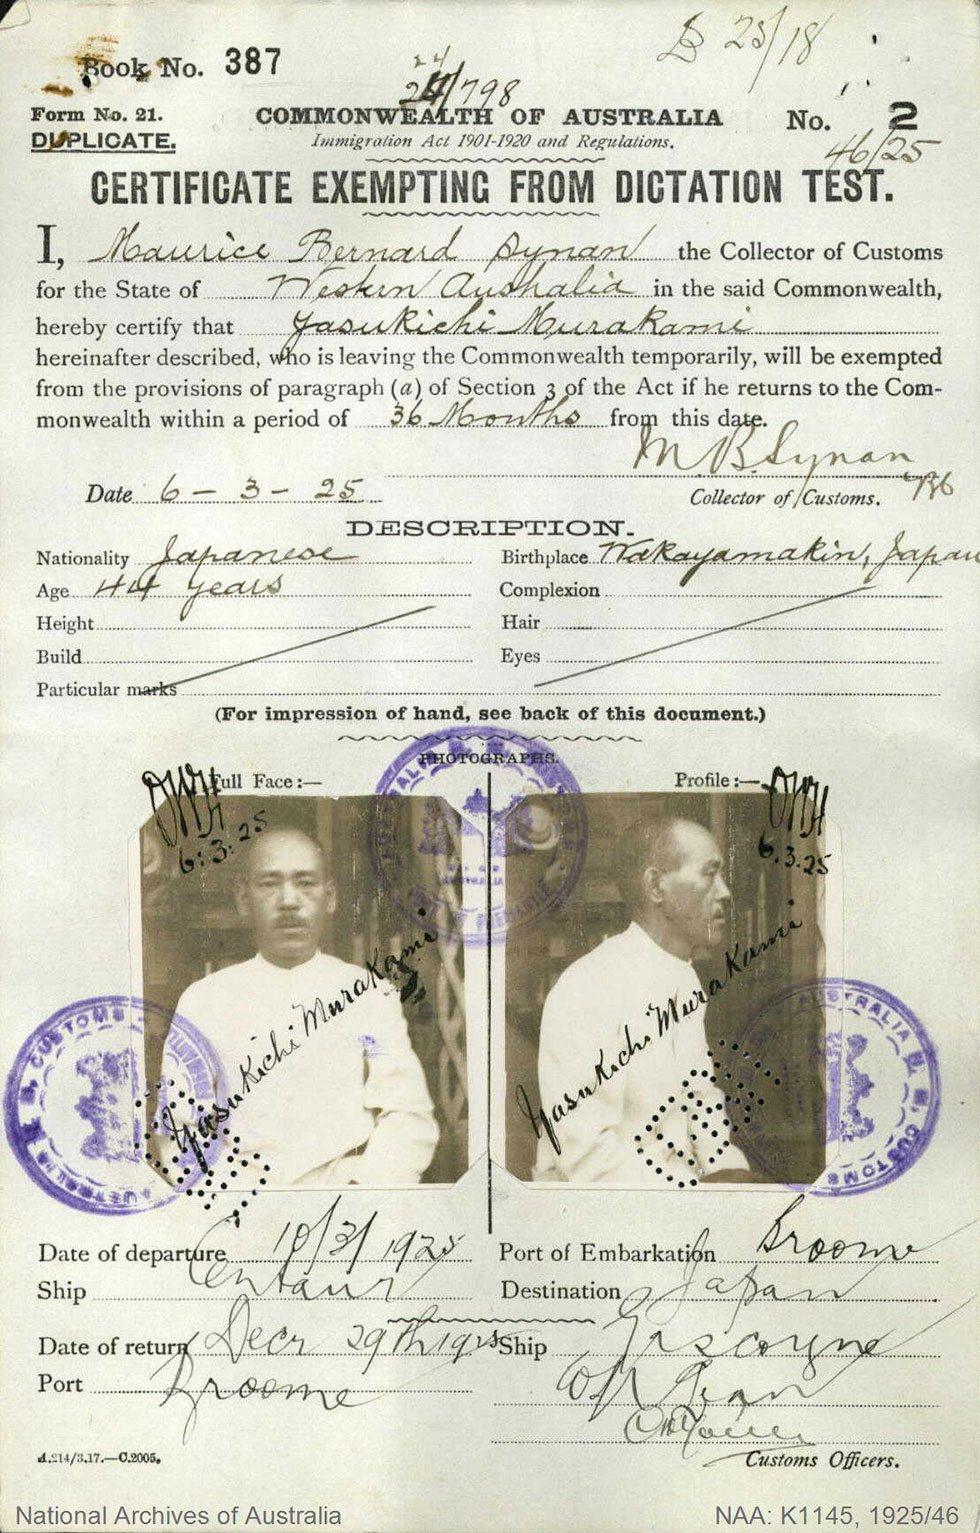 Book No. 387
B 25/18
24
24/798
Form No. 21.
DUPLICATE.
COMMONWEALTH OF AUSTRALIA
Immigration Act 1901-1920 and Regulations.
No. 2
46/25
CERTIFICATE EXEMPTING FROM DICTATION TEST.
I, Maurice Bernard Synan the Collector of Customs
for the State of Western Australia in the said Commonwealth,
hereby certify that Yasukichi Murakami
hereinafter described, who is leaving the Commonwealth temporarily, will be exempted
from the provisions of paragraph (a) of Section 3 of the Act if he returns to the Com-
monwealth within a period of 36 Months from this date.
M B Synan
Date 6 - 3 - 25
Collector of Customs.
DESCRIPTION.
Nationality Japanese Birthplace Wakayamakin, Japan
Age 44 years Complexion
Height Hair
Build Eyes
Particular marks
(For impression of hand, see back of this document.)
PHOTOGRAPHS.
Full Face:— Profile:—
6.3.25 6.3.25
Yasukichi Murakami Yasukichi Murakami
CUSTOMS AUSTRALIA
Date of departure 10/3/1925 Port of Embarkation Broome
Ship Centaur Destination Japan
Date of return Decr 29th 1925 Ship Gascoyne
Port Broome
Customs Officers.
A.214/3.17.—C.2005.
National Archives of Australia NAA: K1145, 1925/46